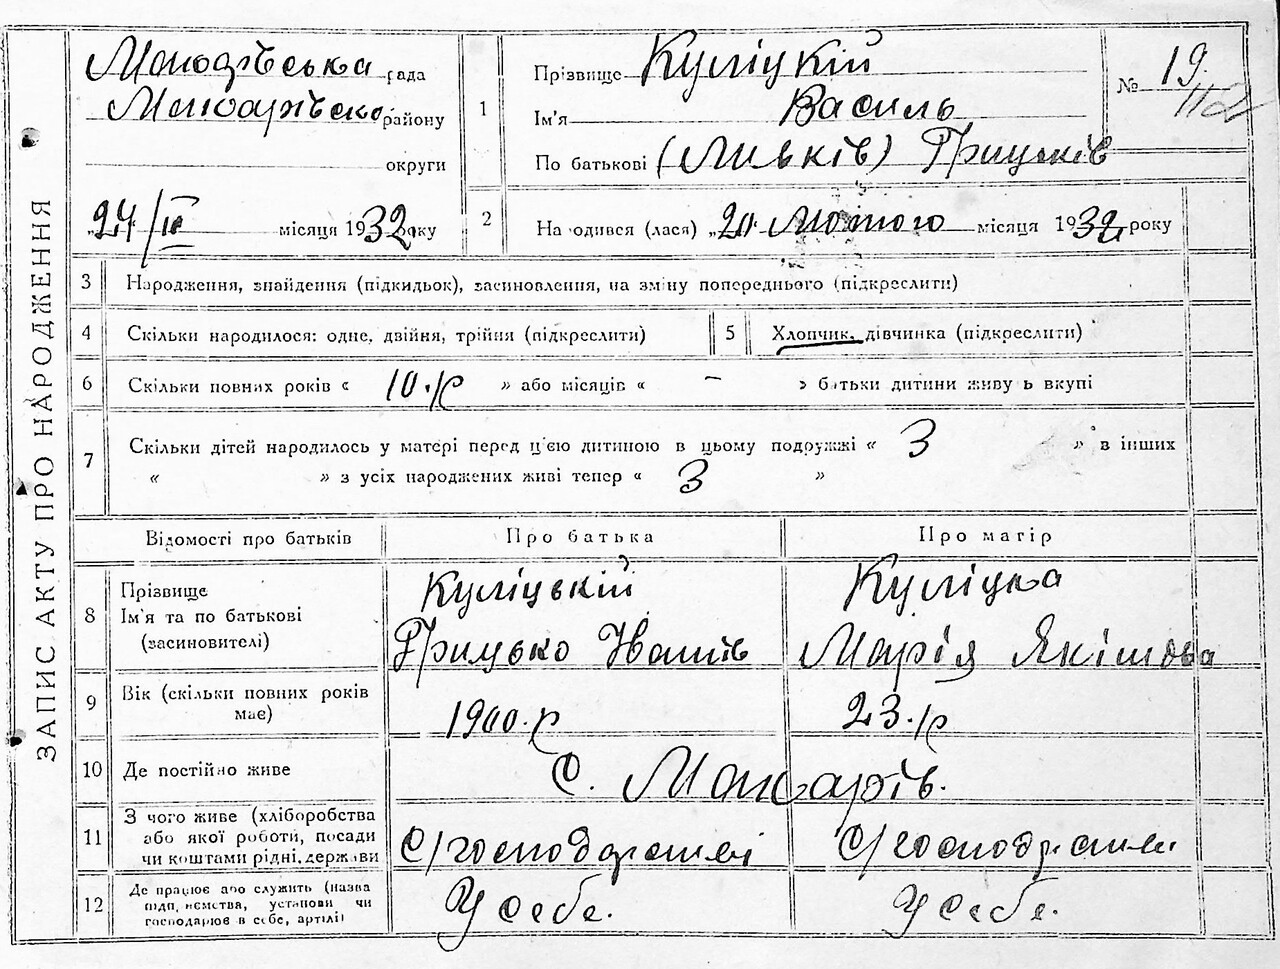 ЗАПИС АКТУ ПРО НАРОДЖЕННЯ
рада
району
округи
„24/IV місяця 1932 року
1
Прізвище Куліцкій
Ім'я Василь
По батькові (Миньків) Грицьків
№ 19
112
2
На одився (лася) „20 Лютого місяця 1932 року
3 Народження, знайдення (підкидьок), засиновлення, на зміну попереднього (підкреслити)
4 Скільки народилося: одне, двійня, трійня (підкреслити)
5 Хлопчик, дівчинка (підкреслити)
6 Скільки повних років « 10.р » або місяців « – » батьки дитини живу ь вкупі
7 Скільки дітей народилось у матері перед ц'єю дитиною в цьому подружжі « 3 » в інших
« » з усіх народжених живі тепер « 3 »
Відомості про батьків Про батька Про матір
8 Прізвище
Ім'я та по батькові
(засиновителі)
Куліцький
Грицько Іванів
Куліцка
Марія Якімова
9 Вік (скільки повних років
має)
1900.р
23.р
10 Де постійно живе
с. Макарів.
11 З чого живе (хліборобства
або якої роботи, посади
чи коштами рідні, держави
С/господарстві
С/господарстві
12 Де працює або служить (назва
підп, иємства, установи чи
господарює в себе, артілі)
У себе.
У себе.